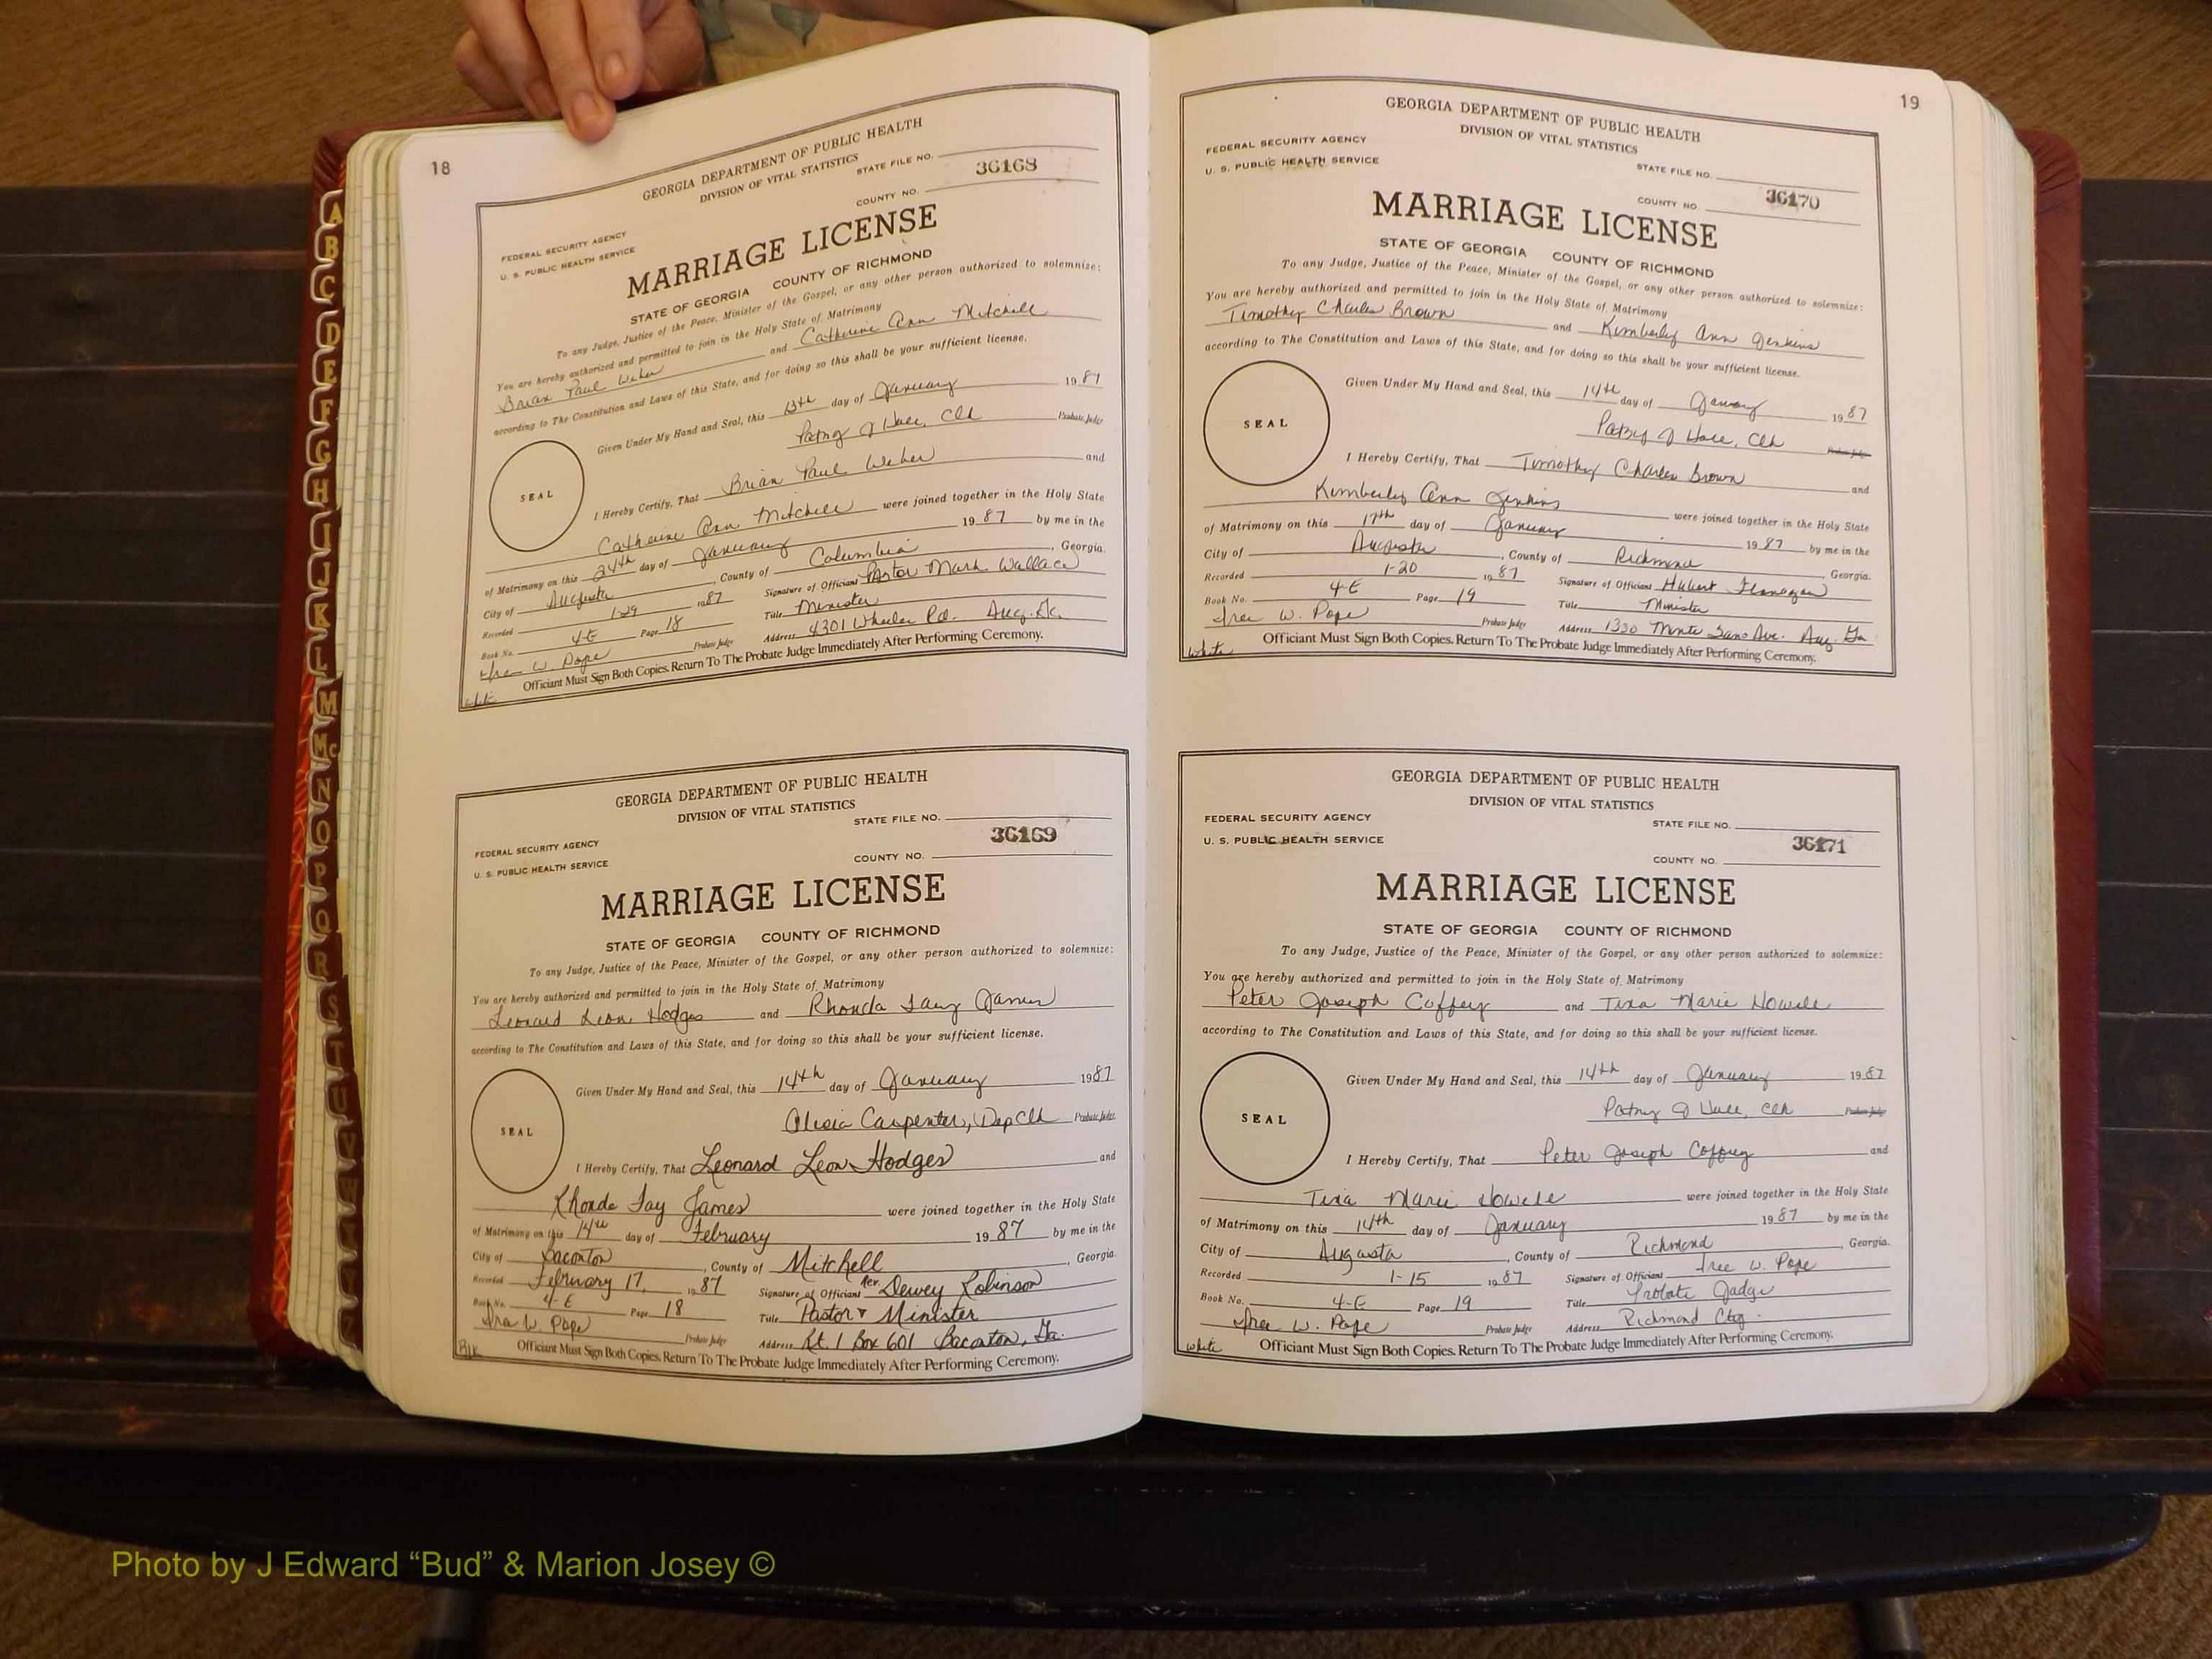 18
GEORGIA DEPARTMENT OF PUBLIC HEALTH
DIVISION OF VITAL STATISTICS
STATE FILE NO.
36168
COUNTY NO.
FEDERAL SECURITY AGENCY
U. S. PUBLIC HEALTH SERVICE
MARRIAGE LICENSE
STATE OF GEORGIA COUNTY OF RICHMOND
To any Judge, Justice of the Peace, Minister of the Gospel, or any other person authorized to solemnize:
You are hereby authorized and permitted to join in the Holy State of Matrimony
Brian Paul Weber and Catherine Ann Mitchell
according to The Constitution and Laws of this State, and for doing so this shall be your sufficient license.
Given Under My Hand and Seal, this 13th day of January 1987
Patsy J Hall, Clk Probate Judge
SEAL
I Hereby Certify, That Brian Paul Weber and
Catherine Ann Mitchell were joined together in the Holy State
of Matrimony on this 24th day of January 1987 by me in the
City of Augusta, County of Columbia, Georgia.
Recorded 1-29 1987 Signature of Officiant Pastor Mark Wallace
Book No. 4-E Page 18 Title Minister
Ira W. Pope Probate Judge Address 4301 Wheeler Rd. Aug. Ga.
Officiant Must Sign Both Copies. Return To The Probate Judge Immediately After Performing Ceremony.
white
GEORGIA DEPARTMENT OF PUBLIC HEALTH
DIVISION OF VITAL STATISTICS
STATE FILE NO.
36169
COUNTY NO.
FEDERAL SECURITY AGENCY
U. S. PUBLIC HEALTH SERVICE
MARRIAGE LICENSE
STATE OF GEORGIA COUNTY OF RICHMOND
To any Judge, Justice of the Peace, Minister of the Gospel, or any other person authorized to solemnize:
You are hereby authorized and permitted to join in the Holy State of Matrimony
Leonard Leon Hodges and Rhonda Fay James
according to The Constitution and Laws of this State, and for doing so this shall be your sufficient license.
Given Under My Hand and Seal, this 14th day of January 1987
Alicia Carpenter, Dep Clk Probate Judge
SEAL
I Hereby Certify, That Leonard Leon Hodges and
Rhonda Fay James were joined together in the Holy State
of Matrimony on this 14th day of February 1987 by me in the
City of Baconton, County of Mitchell, Georgia.
Recorded February 17, 1987 Signature of Officiant Rev. Dewey Robinson
Book No. 4-E Page 18 Title Pastor & Minister
Ira W. Pope Probate Judge Address Rt. 1 Box 601 Baconton, Ga.
Officiant Must Sign Both Copies. Return To The Probate Judge Immediately After Performing Ceremony.
Blk
19
GEORGIA DEPARTMENT OF PUBLIC HEALTH
DIVISION OF VITAL STATISTICS
FEDERAL SECURITY AGENCY
U. S. PUBLIC HEALTH SERVICE
STATE FILE NO.
36170
COUNTY NO.
MARRIAGE LICENSE
STATE OF GEORGIA COUNTY OF RICHMOND
To any Judge, Justice of the Peace, Minister of the Gospel, or any other person authorized to solemnize:
You are hereby authorized and permitted to join in the Holy State of Matrimony
Timothy Charles Brown and Kimberly Ann Jenkins
according to The Constitution and Laws of this State, and for doing so this shall be your sufficient license.
Given Under My Hand and Seal, this 14th day of January 1987
Patsy J Hall, Clk Probate Judge
SEAL
I Hereby Certify, That Timothy Charles Brown and
Kimberly Ann Jenkins were joined together in the Holy State
of Matrimony on this 17th day of January 1987 by me in the
City of Augusta, County of Richmond, Georgia.
Recorded 1-20 1987 Signature of Officiant Hubert Flanagan
Book No. 4-E Page 19 Title Minister
Ira W. Pope Probate Judge Address 1330 Monte Sano Ave. Aug. Ga
Officiant Must Sign Both Copies. Return To The Probate Judge Immediately After Performing Ceremony.
white
GEORGIA DEPARTMENT OF PUBLIC HEALTH
DIVISION OF VITAL STATISTICS
FEDERAL SECURITY AGENCY
U. S. PUBLIC HEALTH SERVICE
STATE FILE NO.
36171
COUNTY NO.
MARRIAGE LICENSE
STATE OF GEORGIA COUNTY OF RICHMOND
To any Judge, Justice of the Peace, Minister of the Gospel, or any other person authorized to solemnize:
You are hereby authorized and permitted to join in the Holy State of Matrimony
Peter Joseph Coffey and Tina Marie Howell
according to The Constitution and Laws of this State, and for doing so this shall be your sufficient license.
Given Under My Hand and Seal, this 14th day of January 1987
Patsy J Hall, Clk Probate Judge
SEAL
I Hereby Certify, That Peter Joseph Coffey and
Tina Marie Howell were joined together in the Holy State
of Matrimony on this 14th day of January 1987 by me in the
City of Augusta, County of Richmond, Georgia.
Recorded 1-15 1987 Signature of Officiant Ira W. Pope
Book No. 4-E Page 19 Title Probate Judge
Ira W. Pope Probate Judge Address Richmond Cty.
Officiant Must Sign Both Copies. Return To The Probate Judge Immediately After Performing Ceremony.
white
A
B
C
D
E
F
G
H
I
J
K
L
M
Mc
N
O
P
Q
R
S
T
U
V
Photo by J Edward “Bud” & Marion Josey ©